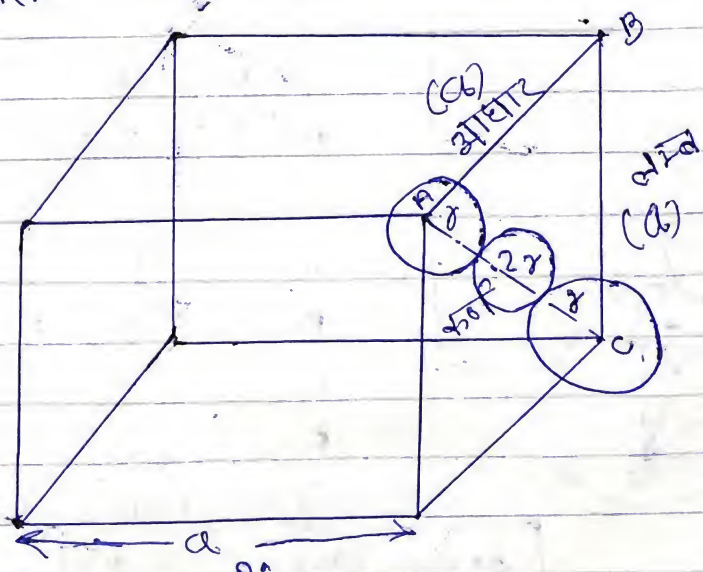 B
(a)
आधार
लम्ब
(a)
A
r
2r
कर्ण
r
C
a